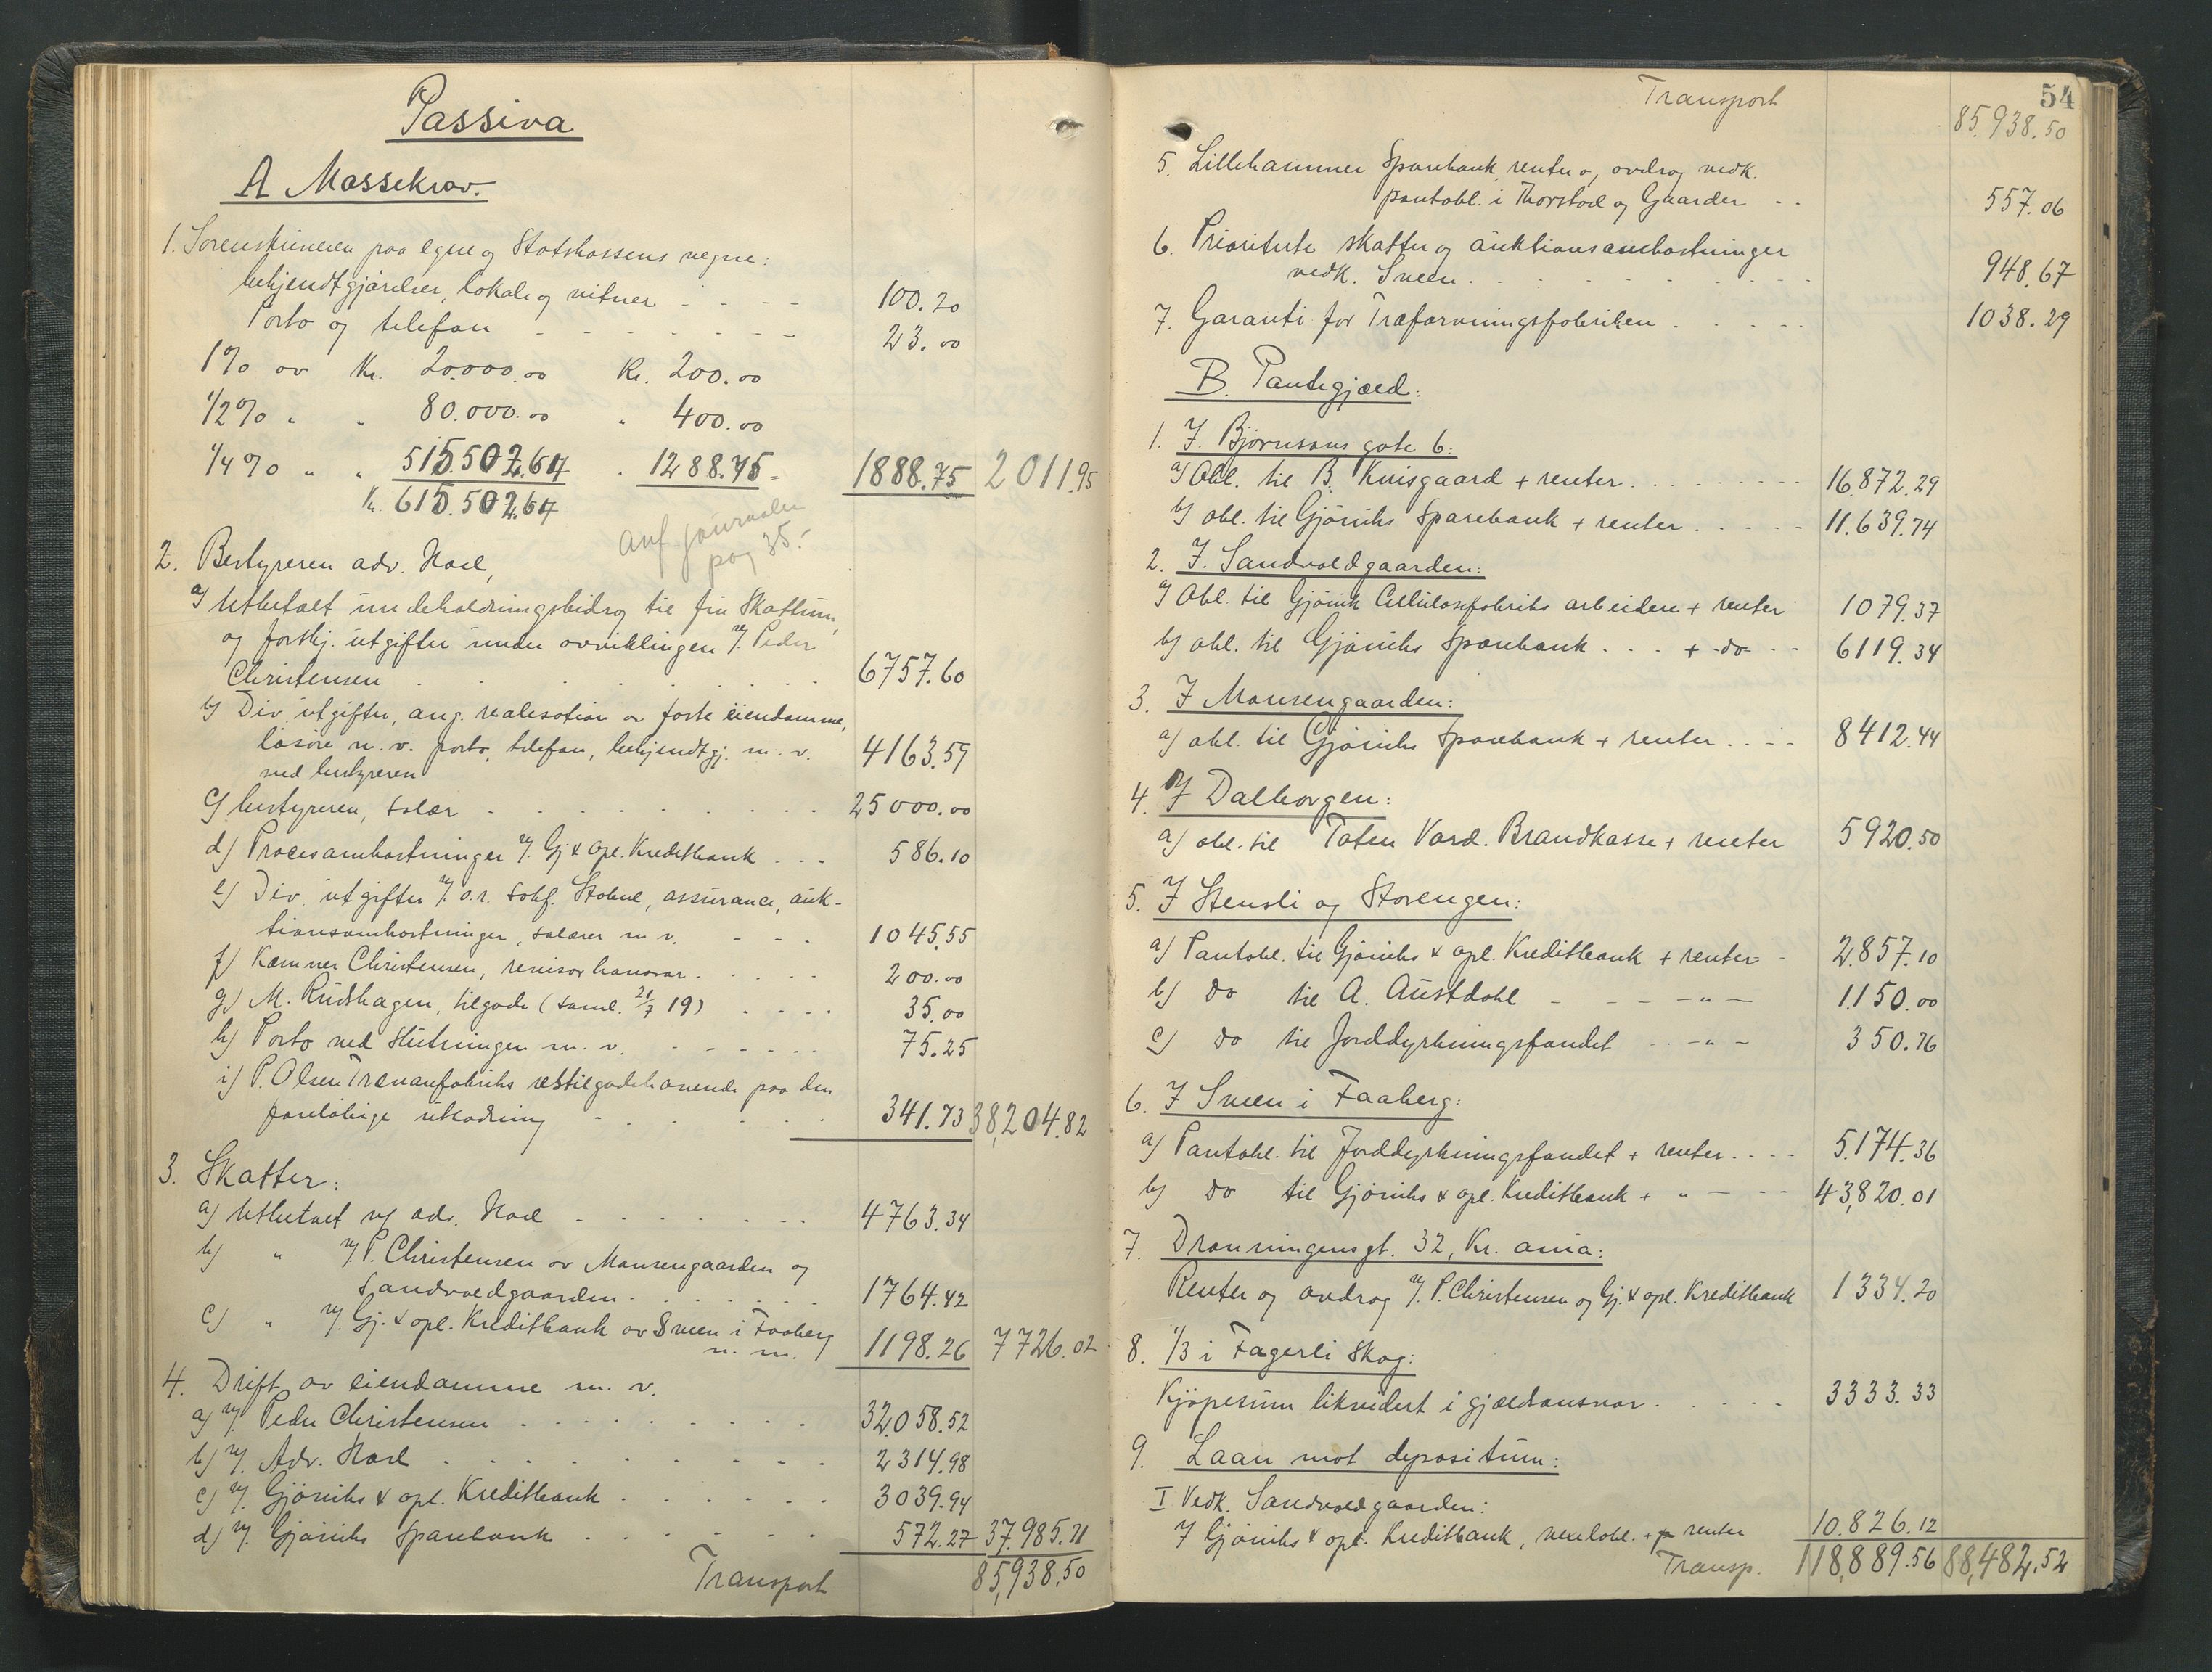 Passiva
A Massekrav.
1. Sorenskriveren paa egne og Statskassens vegne:
bekjendtgjørelser, lokale og vitner - - - - 100.20
Porto og telefon - - - - - - - 23.00
1% av Kr. 20.000.00 Kr. 200.00
1/2% " " 80.000.00 " 400.00
1/4% " " 515.502.64 " 1288.75 = 1888.75 2011.95
Kr. 615.502.64
Anf. journalen
pag 35.
2. Bestyreren adv. Hoel,
a) Utbetalt underholdningsbidrag til fru Skattum,
og forskj. utgifter under avviklingen v/ Peder
Christensen . . . . . . . 6757.60
b) Div. utgifter, ang. realisation av faste eiendomme,
løsøre m. v. porto, telefon, bekjendtgj. m. v.
ved bestyreren 4163.59
c) bestyreren, salær - . . . . . . 25000.00
d) Procesomkostninger v/ Gj & opl. Kreditbank . . . 586.10
e) Div. utgifter v/ o.r. sakf. Stabel, assurance, auk-
tionsomkostninger, salærer m v. - - . 1045.55
f) Kæmner Christensen, revisor honorar . . . . . 200.00
g) M. Rudshagen, tilgode (saml. 21/7 19) . . . . 35.00
h) Porto ved slutningen m. v. - - - - - - 75.25
i) P. Olsen Trævarefabriks resttilgodehavende paa den
foreløbige utlodning - . . . . . 341.73 38,204.82
3. Skatter:
a) Utbetalt v/ adv. Hoel - . . . . . . 4763.34
b) " v/ P. Christensen av Monsengaarden og
Sandvoldgaarden . . . . . . 1764.42
c) " v/ Gj. & opl. Kreditbank av Sveen i Faaberg
m. m. 1198.26 7726.02
4. Drift av eiendomme m. v.
a) v/ Peder Christensen . . . . . . . . 32.058.52
b) v/ Adv. Hoel . . . . . . . . . 2314.98
c) v/ Gjøviks & opl. Kreditbank . . . . . . 3039.94
d) v/ Gjøviks Sparebank . . . . . . 572.27 37.985.71
Transport 85,938.50
54
Transport 85.938.50
5. Lillehammer Sparebank, renter o, avdrag vedk.
pantobl. i Thorstad og Gaarder . . 557.06
6. Prioriterte skatter og auktionsomkostninger
vedk. Sveen . . . . . . . . 948.67
7. Garanti for Træforvningsfabriken . . . . . 1038.29
B. Pantegjæld:
1. I Bjørnsons gate 6:
a) Obl. til B. Kuisgaard + renter . . . . . . . . 16.872.29
b) obl. til Gjøviks Sparebank + renter . . . . . 11.639.74
2. I. Sandvoldgaarden:
a) Obl. til Gjøvik Cellulosefabriks arbeidere + renter 1079.37
b) obl. til Gjøviks Sparebank . . . + -do- . . 6119.34
3. I Monsengaarden:
a) obl. til Gjøviks Sparebank + renter . . . . 8412.44
4. I Dalborgen:
a) obl. til Toten Vard. Brandkasse + renter 5920.50
5. I Stensli og Storengen:
a) Pantobl. til Gjøviks & opl. Kreditbank + renter - 2.857.10
b) do til A. Austdahl - - - - " - 1.150.00
c) do til Jorddyrkningsfondet . . - " - 350.76
6. I Sveen i Faaberg:
a) Pantobl. til Jorddyrkningsfondet + renter . . . . 5.174.36
b) do til Gjøviks & opl. Kreditbank + " - - - 43,820.01
7. Dronningensgt. 32, Kr. ania:
Renter og avdrag v/ P. Christensen og Gj. & opl. Kreditbank 1334.20
8. 1/3 i Fagerli Skog:
Kjøpesum likvidert i gjældsansvar . . . . . 3333.33
9. Laan mot depositum:
I Vedk. Sandvoldgaarden:
I Gjøviks & opl. Kreditbank, vexelobl. + renter 10.826.12
Transp. 118,889.56 88,482.52